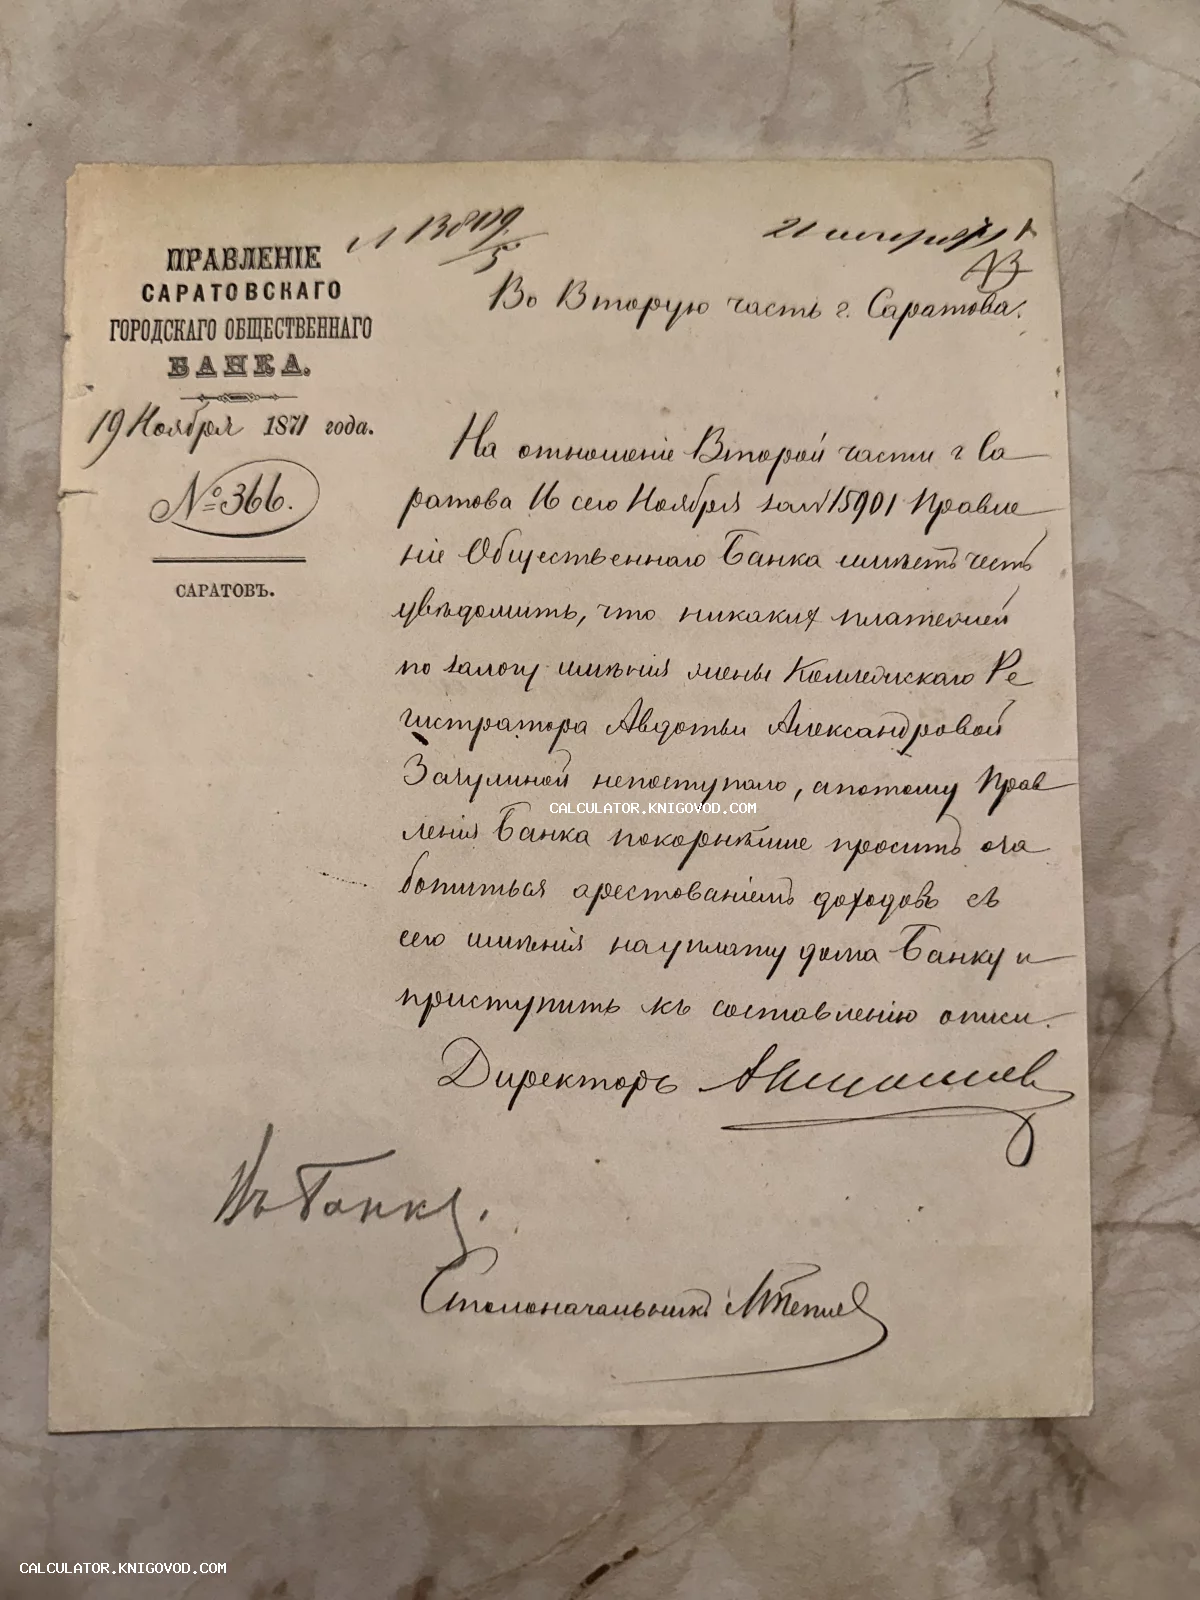 № 13809/5
21 ноября
ПРАВЛЕНІЕ
САРАТОВСКАГО
ГОРОДСКАГО ОБЩЕСТВЕННАГО
БАНКА.
19 Ноября 1871 года.
№ 366.
САРАТОВЪ.
Во Вторую часть г. Саратова.
На отношеніе Второй части г Са
ратова 16 сего Ноября за № 15901 Правле
ніе Общественнаго Банка имѣетъ честь
увѣдомить, что никакихъ платежей
по залогу имѣнія жены Коллежскаго Ре
гистратора Авдотьи Александровой
непоступало, апотому Прав
ленія Банка покорнѣйше проситъ оза
ботиться арестованіемъ доходовъ съ
сего имѣнія науплату Банку и
приступить къ составленію описи.
CALCULATOR.KNIGOVOD.COM
Директоръ
Столоначальникъ
CALCULATOR.KNIGOVOD.COM